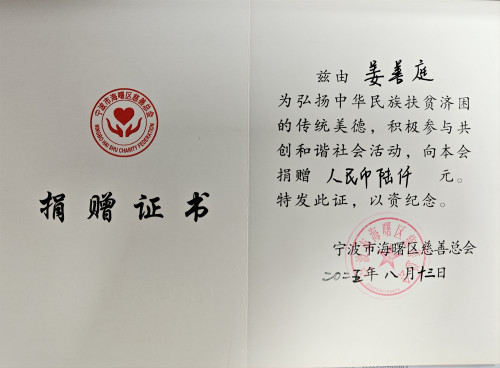 宁波市海曙区慈善总会
NINGBO HAI SHU CHARITY FEDERATION
捐赠证书
兹由 姜善庭
为弘扬中华民族扶贫济困
的传统美德，积极参与共
创和谐社会活动，向本会
捐赠 人民币陆仟 元。
特发此证，以资纪念。
宁波市海曙区慈善总会
二〇二五年八月十三日